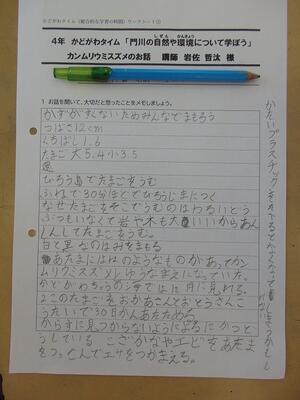 かどがわタイム（総合的な学習の時間）ワークシート②
4年 かどがわタイム「門川の自然や環境について学ぼう」
カンムリウミスズメのお話 講師 岩佐 哲汰 様
1 お話を聞いて、大切だと思ったことをメモしましょう。
かずがすくないためみんなでまもろう
つばさ12cm
くちばし1.6
たまご大5.4小3.5
びろう島でたまごをうむ
ふれて30分ほどでひろしまにつく
なぜたまごをそこでうむのはわるいどう
ぶつもいなくて岩や木も大いいからあん
しんしてたまごをうむ。
白と黒なのはみをまもる
あたまにはねのようなものがあってカン
ムリウミスズメというなまえになっていた。
かどがわちょうの海では12月に見れる。
2このたまごをおかあさんとおとうさんこ
うたいで30日かんあたためる
からすに見つからないようによるにかつど
うしている こざかなやエビをあたま
をつっこんでエサをつかまえる。
かたいプラスチックを